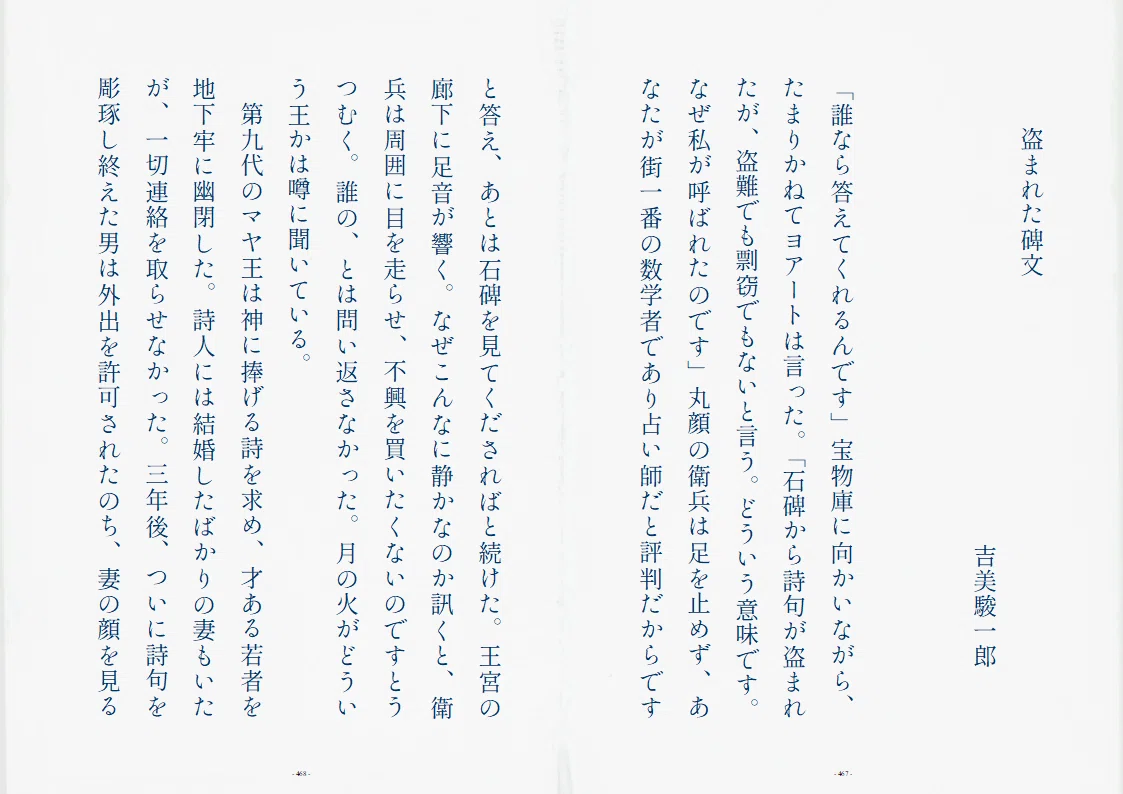 盗まれた碑文
吉美駿一郎
「誰なら答えてくれるんです」宝物庫に向かいながら、
たまりかねてヨアートは言った。「石碑から詩句が盗まれ
たが、盗難でも剽窃でもないと言う。どういう意味です。
なぜ私が呼ばれたのです」丸顔の衛兵は足を止めず、あ
なたが街一番の数学者であり占い師だと評判だからです
- 467 -
と答え、あとは石碑を見てくださればと続けた。王宮の
廊下に足音が響く。なぜこんなに静かなのか訊くと、衛
兵は周囲に目を走らせ、不興を買いたくないのですとう
つむく。誰の、とは問い返さなかった。月の火がどうい
う王かは噂に聞いている。
第九代のマヤ王は神に捧げる詩を求め、才ある若者を
地下牢に幽閉した。詩人には結婚したばかりの妻もいた
が、一切連絡を取らせなかった。三年後、ついに詩句を
彫琢し終えた男は外出を許可されたのち、妻の顔を見る
- 468 -